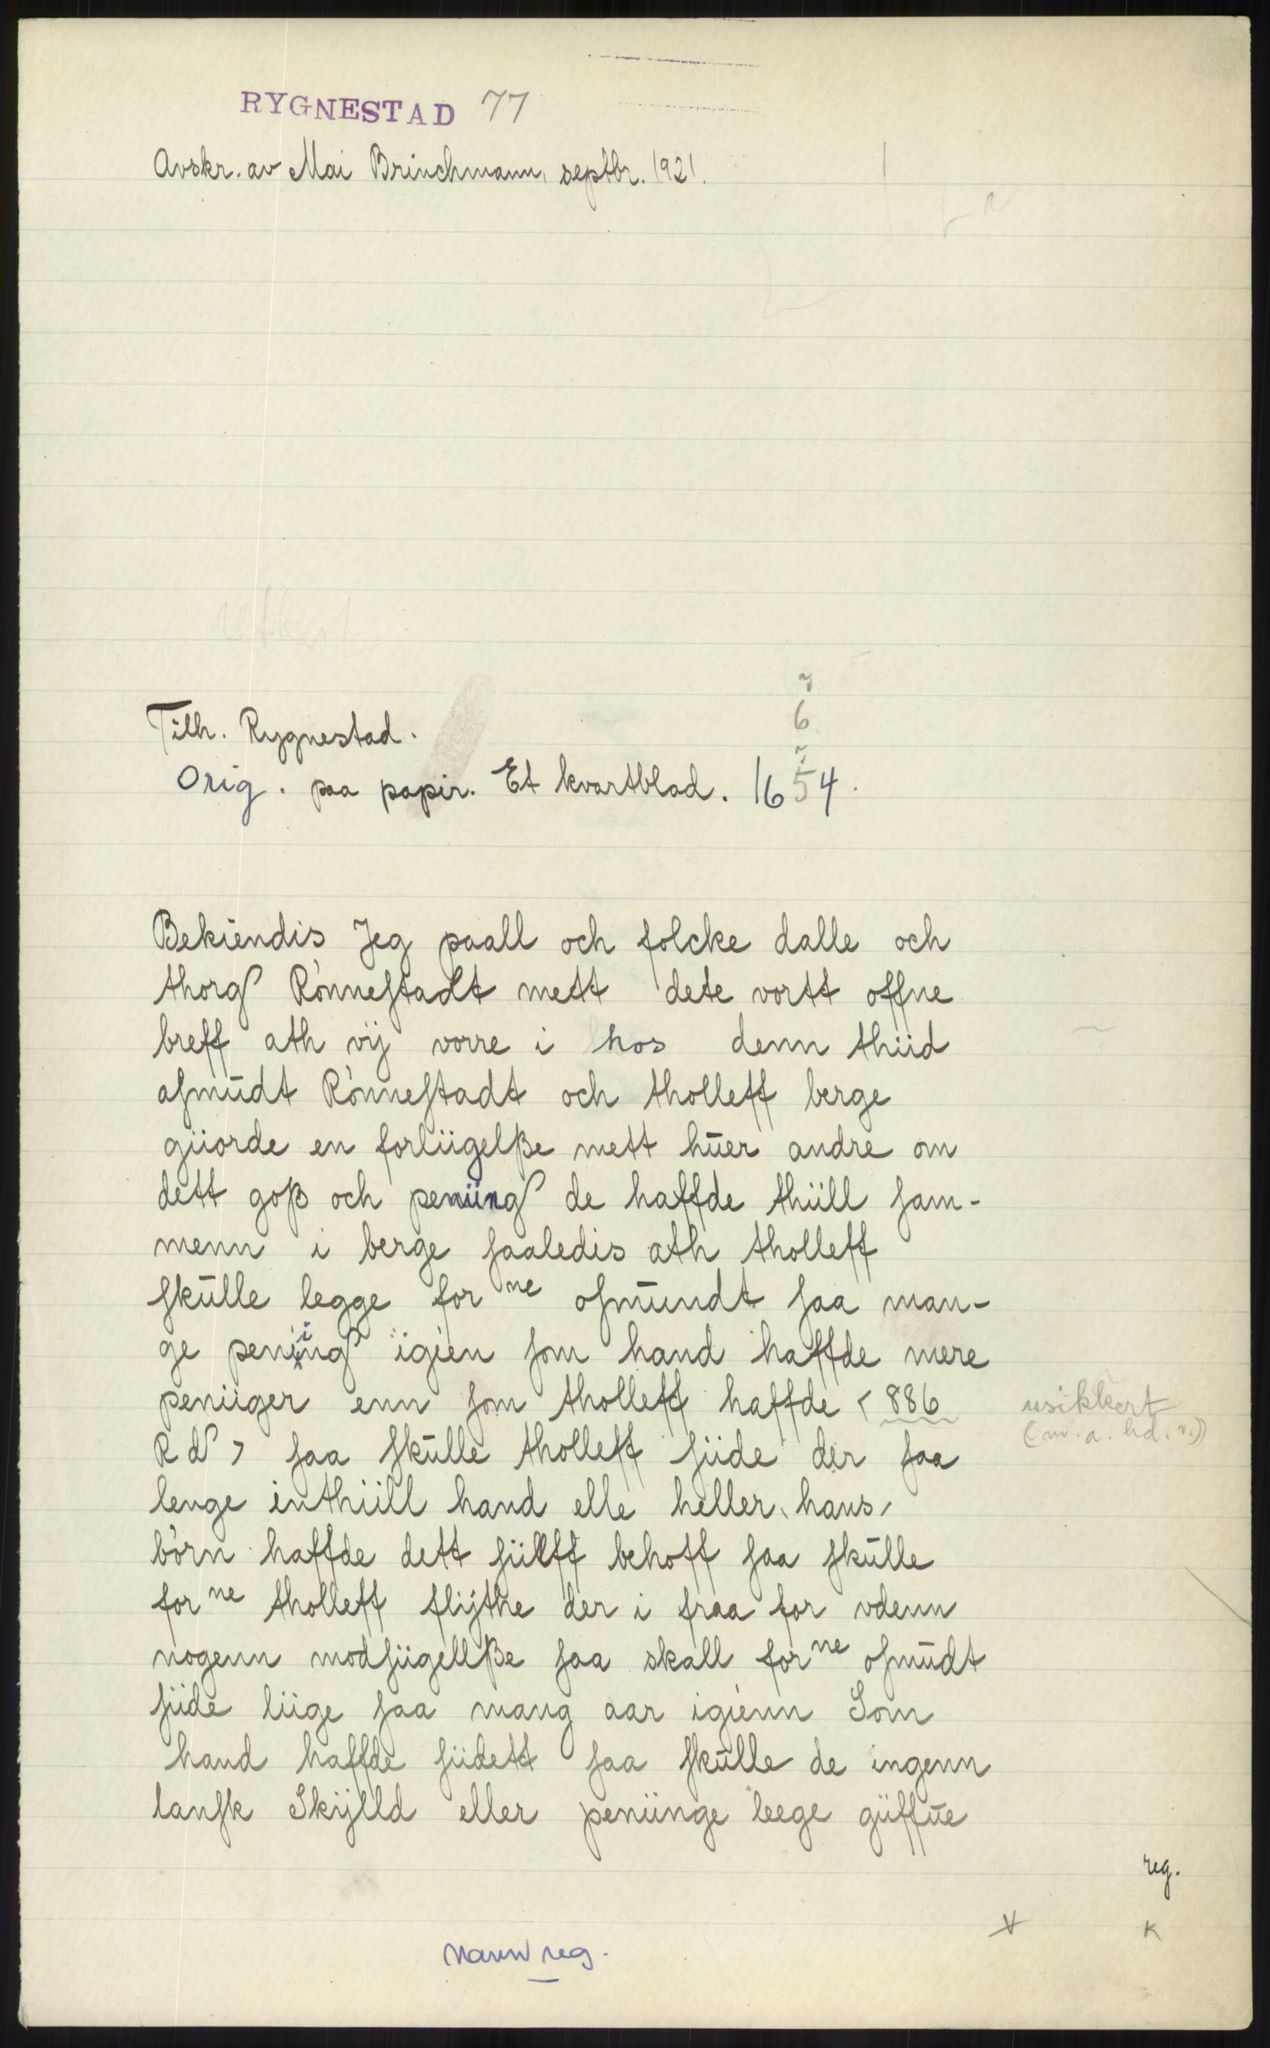 RYGNESTAD 77
Avskr. av Mai Brinchmann, septbr. 1921.
Tilh. Rygnestad.
6
Orig. paa papir. Et kvartblad. 1654.
Bekiendis Jeg paall och folcke dalle och
thorg Rönneſtadt mett dete vortt offne
breff ath vÿ vorre i hos denn thiid
aſmŭdt Rönneſtadt och tholleff berge
giiorde en forliigelße mett hŭer andre om
dett goß och peniing de haffde thiill ſam-
menn i berge ſaaledis ath tholleff
ſkŭlle legge for ne oſmŭndt ſaa man-
ge pening igien ſom hand haffde mere
peniiger enn ſom tholleff haffde < 886
R d > ſaa ſkŭlle tholleff ſiide der ſaa
usikkert
lenge inthiill hand elle heller hans
börn haffde dett ſiilff behoff ſaa ſkŭlle
for ne tholleff flÿthe der i fraa for vdenn
nogenn modſiigellße ſaa skall for ne oſmŭdt
ſiide liige ſaa mang aar igienn Som
hand haffde ſiidett ſaa ſkŭlle de ingenn
lanſk Skÿlld eller peniinge leege giiffŭe
reg.
V K
navnreg.